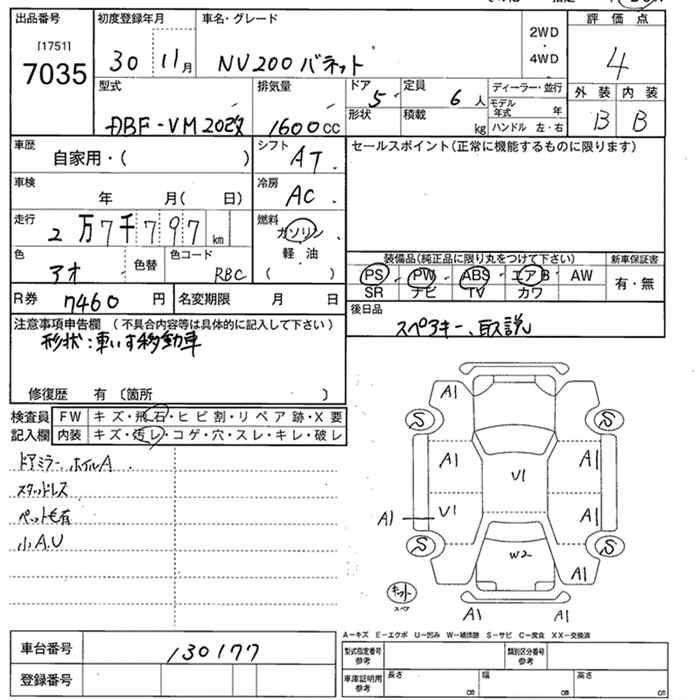 出品番号 初度登録年月 車名・グレード 2WD・4WD 評価点
[1751]
7035 30 11月 NV200 バネット 4
型式 排気量 ドア 5 定員 6人 ディーラー・並行 外装 内装
DBF-VM20改 1600cc 形状 積載 kg モデル年式 年 ハンドル 左・右 B B
車歴 自家用・( ) シフト AT セールスポイント(正常に機能するものに限ります)
車検 年 月( 日) 冷房 AC
走行 2万7千797km 燃料 ガソリン・軽油 ( )
色 アオ 色替 色コード RBC 装備品(純正品に限り丸をつけて下さい) 新車保証書
PS PW ABS エアB AW 有・無
SR ナビ TV カワ
R券 7460円 名変期限 月 日
後日品 スペアキー、取説
注意事項申告欄 (不具合内容等は具体的に記入して下さい)
形状:車いす移動車
修復歴 有 〔箇所 〕
検査員 FW キズ・飛石・ヒビ割・リペア跡・X要
記入欄 内装 キズ・汚レ・コゲ・穴・スレ・キレ・破レ
ドアミラー ホイルA
スタッドレス
ペット毛有
小A.U
A1
S S
A1 A1
U1
A1 U1 A1
S S
W2
A1
キット
スペア
A1 A1
A-キズ E-エクボ U-凹み W-補修跡 S-サビ C-腐食 XX-交換済
車台番号 130177 型式指定番号 参考 類別区分番号 参考
登録番号 車庫証明用 参考 長さ cm 幅 cm 高さ cm